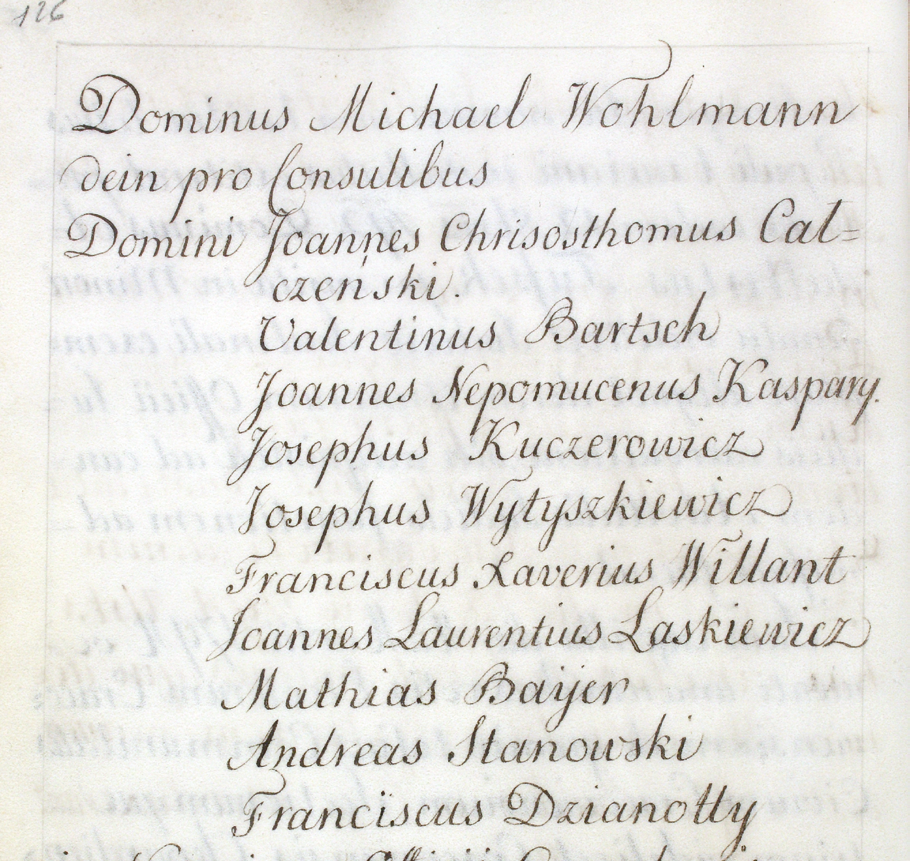 126
Dominus Michael Wohlmann
dein pro Consulibus
Domini Joannes Chrisosthomus Cal=
czeński.
Valentinus Bartsch
Joannes Nepomucenus Kaspary.
Josephus Kuczerowicz
Josephus Wytyszkiewicz
Franciscus Xaverius Willant
Joannes Laurentius Laskiewicz
Mathias Baijer
Andreas Stanowski
Franciscus Dzianotty